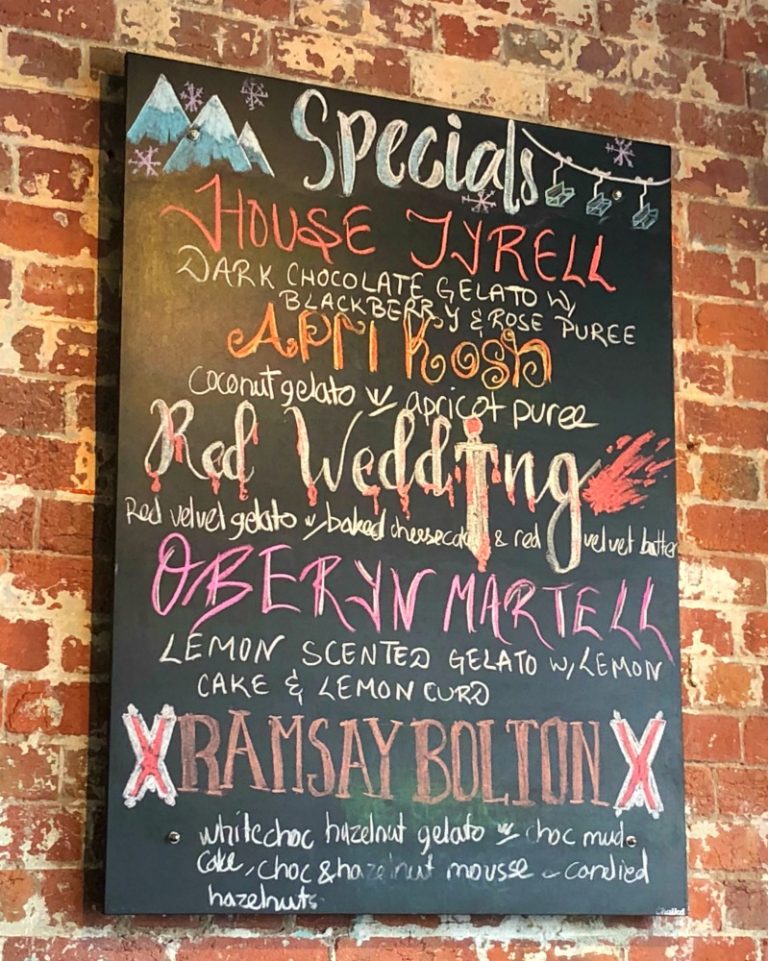 Specials
HOUSE TYRELL
DARK CHOCOLATE GELATO W/
BLACKBERRY & ROSE PUREE
APRI KOSH
Coconut gelato w/ apricot puree
Red Wedding
Red velvet gelato w/ baked cheesecake & red velvet batter
OBERYN MARTELL
LEMON SCENTED GELATO W/ LEMON
CAKE & LEMON CURD
RAMSAY BOLTON
white choc hazelnut gelato w/ choc mud
cake, choc & hazelnut mousse candied
hazelnuts